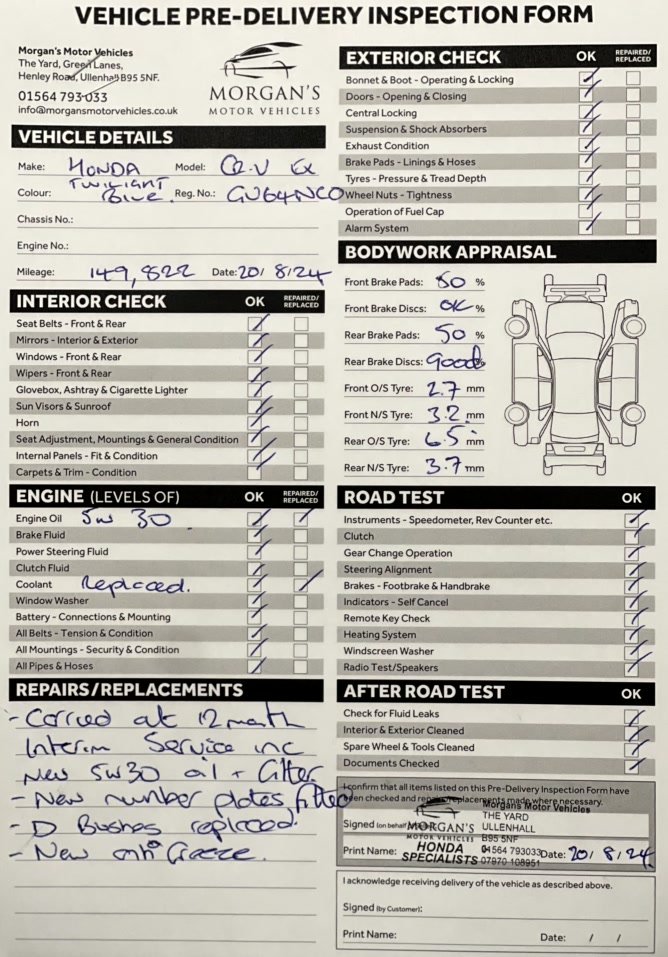 VEHICLE PRE-DELIVERY INSPECTION FORM
Morgan's Motor Vehicles
The Yard, Green Lanes,
Henley Road, Ullenhall B95 5NF.
01564 793 033
info@morgansmotorvehicles.co.uk
MORGAN'S
MOTOR VEHICLES
VEHICLE DETAILS
Make: HONDA Model: CR-V EX
Colour: TWILIGHT Blue. Reg. No.: GV64NCO
Chassis No.:
Engine No.:
Mileage: 149,822 Date: 20/8/24
INTERIOR CHECK OK REPAIRED/REPLACED
Seat Belts - Front & Rear
Mirrors - Interior & Exterior
Windows - Front & Rear
Wipers - Front & Rear
Glovebox, Ashtray & Cigarette Lighter
Sun Visors & Sunroof
Horn
Seat Adjustment, Mountings & General Condition
Internal Panels - Fit & Condition
Carpets & Trim - Condition
ENGINE (LEVELS OF) OK REPAIRED/REPLACED
Engine Oil 5w 30
Brake Fluid
Power Steering Fluid
Clutch Fluid
Coolant Replaced.
Window Washer
Battery - Connections & Mounting
All Belts - Tension & Condition
All Mountings - Security & Condition
All Pipes & Hoses
REPAIRS/REPLACEMENTS
- Carried out 12 month
Interim Service inc
New 5w30 oil + filter
- New number plates fitted
- D Bushes replaced.
- New
EXTERIOR CHECK OK REPAIRED/REPLACED
Bonnet & Boot - Operating & Locking
Doors - Opening & Closing
Central Locking
Suspension & Shock Absorbers
Exhaust Condition
Brake Pads - Linings & Hoses
Tyres - Pressure & Tread Depth
Wheel Nuts - Tightness
Operation of Fuel Cap
Alarm System
BODYWORK APPRAISAL
Front Brake Pads: 50 %
Front Brake Discs: OK %
Rear Brake Pads: 50 %
Rear Brake Discs: Good %
Front O/S Tyre: 2.7 mm
Front N/S Tyre: 3.2 mm
Rear O/S Tyre: 6.5 mm
Rear N/S Tyre: 3.7 mm
ROAD TEST OK
Instruments - Speedometer, Rev Counter etc.
Clutch
Gear Change Operation
Steering Alignment
Brakes - Footbrake & Handbrake
Indicators - Self Cancel
Remote Key Check
Heating System
Windscreen Washer
Radio Test/Speakers
AFTER ROAD TEST OK
Check for Fluid Leaks
Interior & Exterior Cleaned
Spare Wheel & Tools Cleaned
Documents Checked
I confirm that all items listed on this Pre-Delivery Inspection Form have
been checked and repairs/replacements made where necessary.
Morgans Motor Vehicles
THE YARD
Signed (on behalf MORGAN'S ULLENHALL
MOTOR VEHICLES B95 5NF
Print Name: HONDA 01564 793033 Date: 20/8/24
SPECIALISTS 07970 108951
I acknowledge receiving delivery of the vehicle as described above.
Signed (by Customer):
Print Name: Date: / /